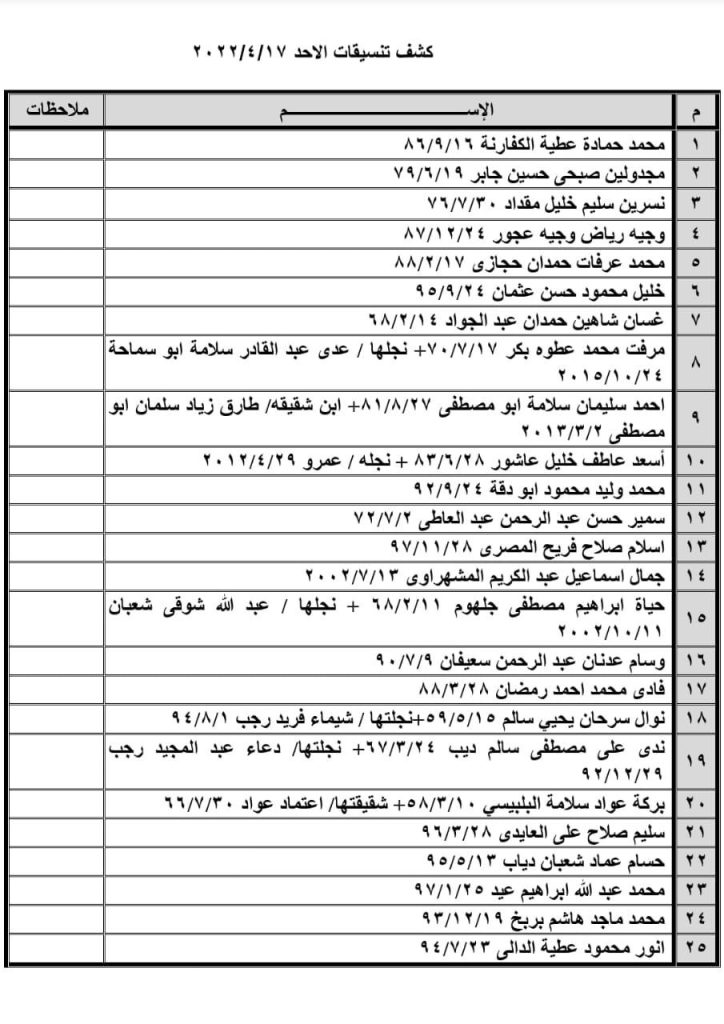 كشف تنسيقات الاحد ٢٠٢٢/٤/١٧
م الإســـــــــــــــــم ملاحظات
١ محمد حمادة عطية الكفارنة ٨٦/٩/١٦
٢ مجدولين صبحى حسين جابر ٧٩/٦/١٩
٣ نسرين سليم خليل مقداد ٧٦/٧/٣٠
٤ وجيه رياض وجيه عجور ٨٧/١٢/٢٤
٥ محمد عرفات حمدان حجازى ٨٨/٢/١٧
٦ خليل محمود حسن عثمان ٩٥/٩/٢٤
٧ غسان شاهين حمدان عبد الجواد ٦٨/٢/١٤
٨ مرفت محمد عطوه بكر ٧٠/٧/١٧+ نجلها / عدى عبد القادر سلامة ابو سماحة
٢٠١٥/١٠/٢٤
٩ احمد سليمان سلامة ابو مصطفى ٨١/٨/٢٧+ ابن شقيقه/ طارق زياد سلمان ابو
مصطفى ٢٠١٣/٣/٢
١٠ أسعد عاطف خليل عاشور ٨٣/٦/٢٨ + نجله / عمرو ٢٠١٢/٤/٢٩
١١ محمد وليد محمود ابو دقة ٩٢/٩/٢٤
١٢ سمير حسن عبد الرحمن عبد العاطى ٧٢/٧/٢
١٣ اسلام صلاح فريح المصرى ٩٧/١١/٢٨
١٤ جمال اسماعيل عبد الكريم المشهراوى ٢٠٠٢/٧/١٣
١٥ حياة ابراهيم مصطفى جلهوم ٦٨/٢/١١ + نجلها / عبد الله شوقى شعبان
٢٠٠٢/١٠/١١
١٦ وسام عدنان عبد الرحمن سعيفان ٩٠/٧/٩
١٧ فادى محمد احمد رمضان ٨٨/٣/٢٨
١٨ نوال سرحان يحيي سالم ٥٩/٥/١٥+نجلتها / شيماء فريد رجب ٩٤/٨/١
١٩ ندى على مصطفى سالم ديب ٦٧/٣/٢٤+ نجلتها/ دعاء عبد المجيد رجب
٩٢/١٢/٢٩
٢٠ بركة عواد سلامة البلبيسي ٥٨/٣/١٠+ شقيقتها/ اعتماد عواد ٦٦/٧/٣٠
٢١ سليم صلاح على العايدى ٩٦/٣/٢٨
٢٢ حسام عماد شعبان دياب ٩٥/٥/١٣
٢٣ محمد عبد الله ابراهيم عيد ٩٧/١/٢٥
٢٤ محمد ماجد هاشم بربخ ٩٣/١٢/١٩
٢٥ انور محمود عطية الدالى ٩٤/٧/٢٣